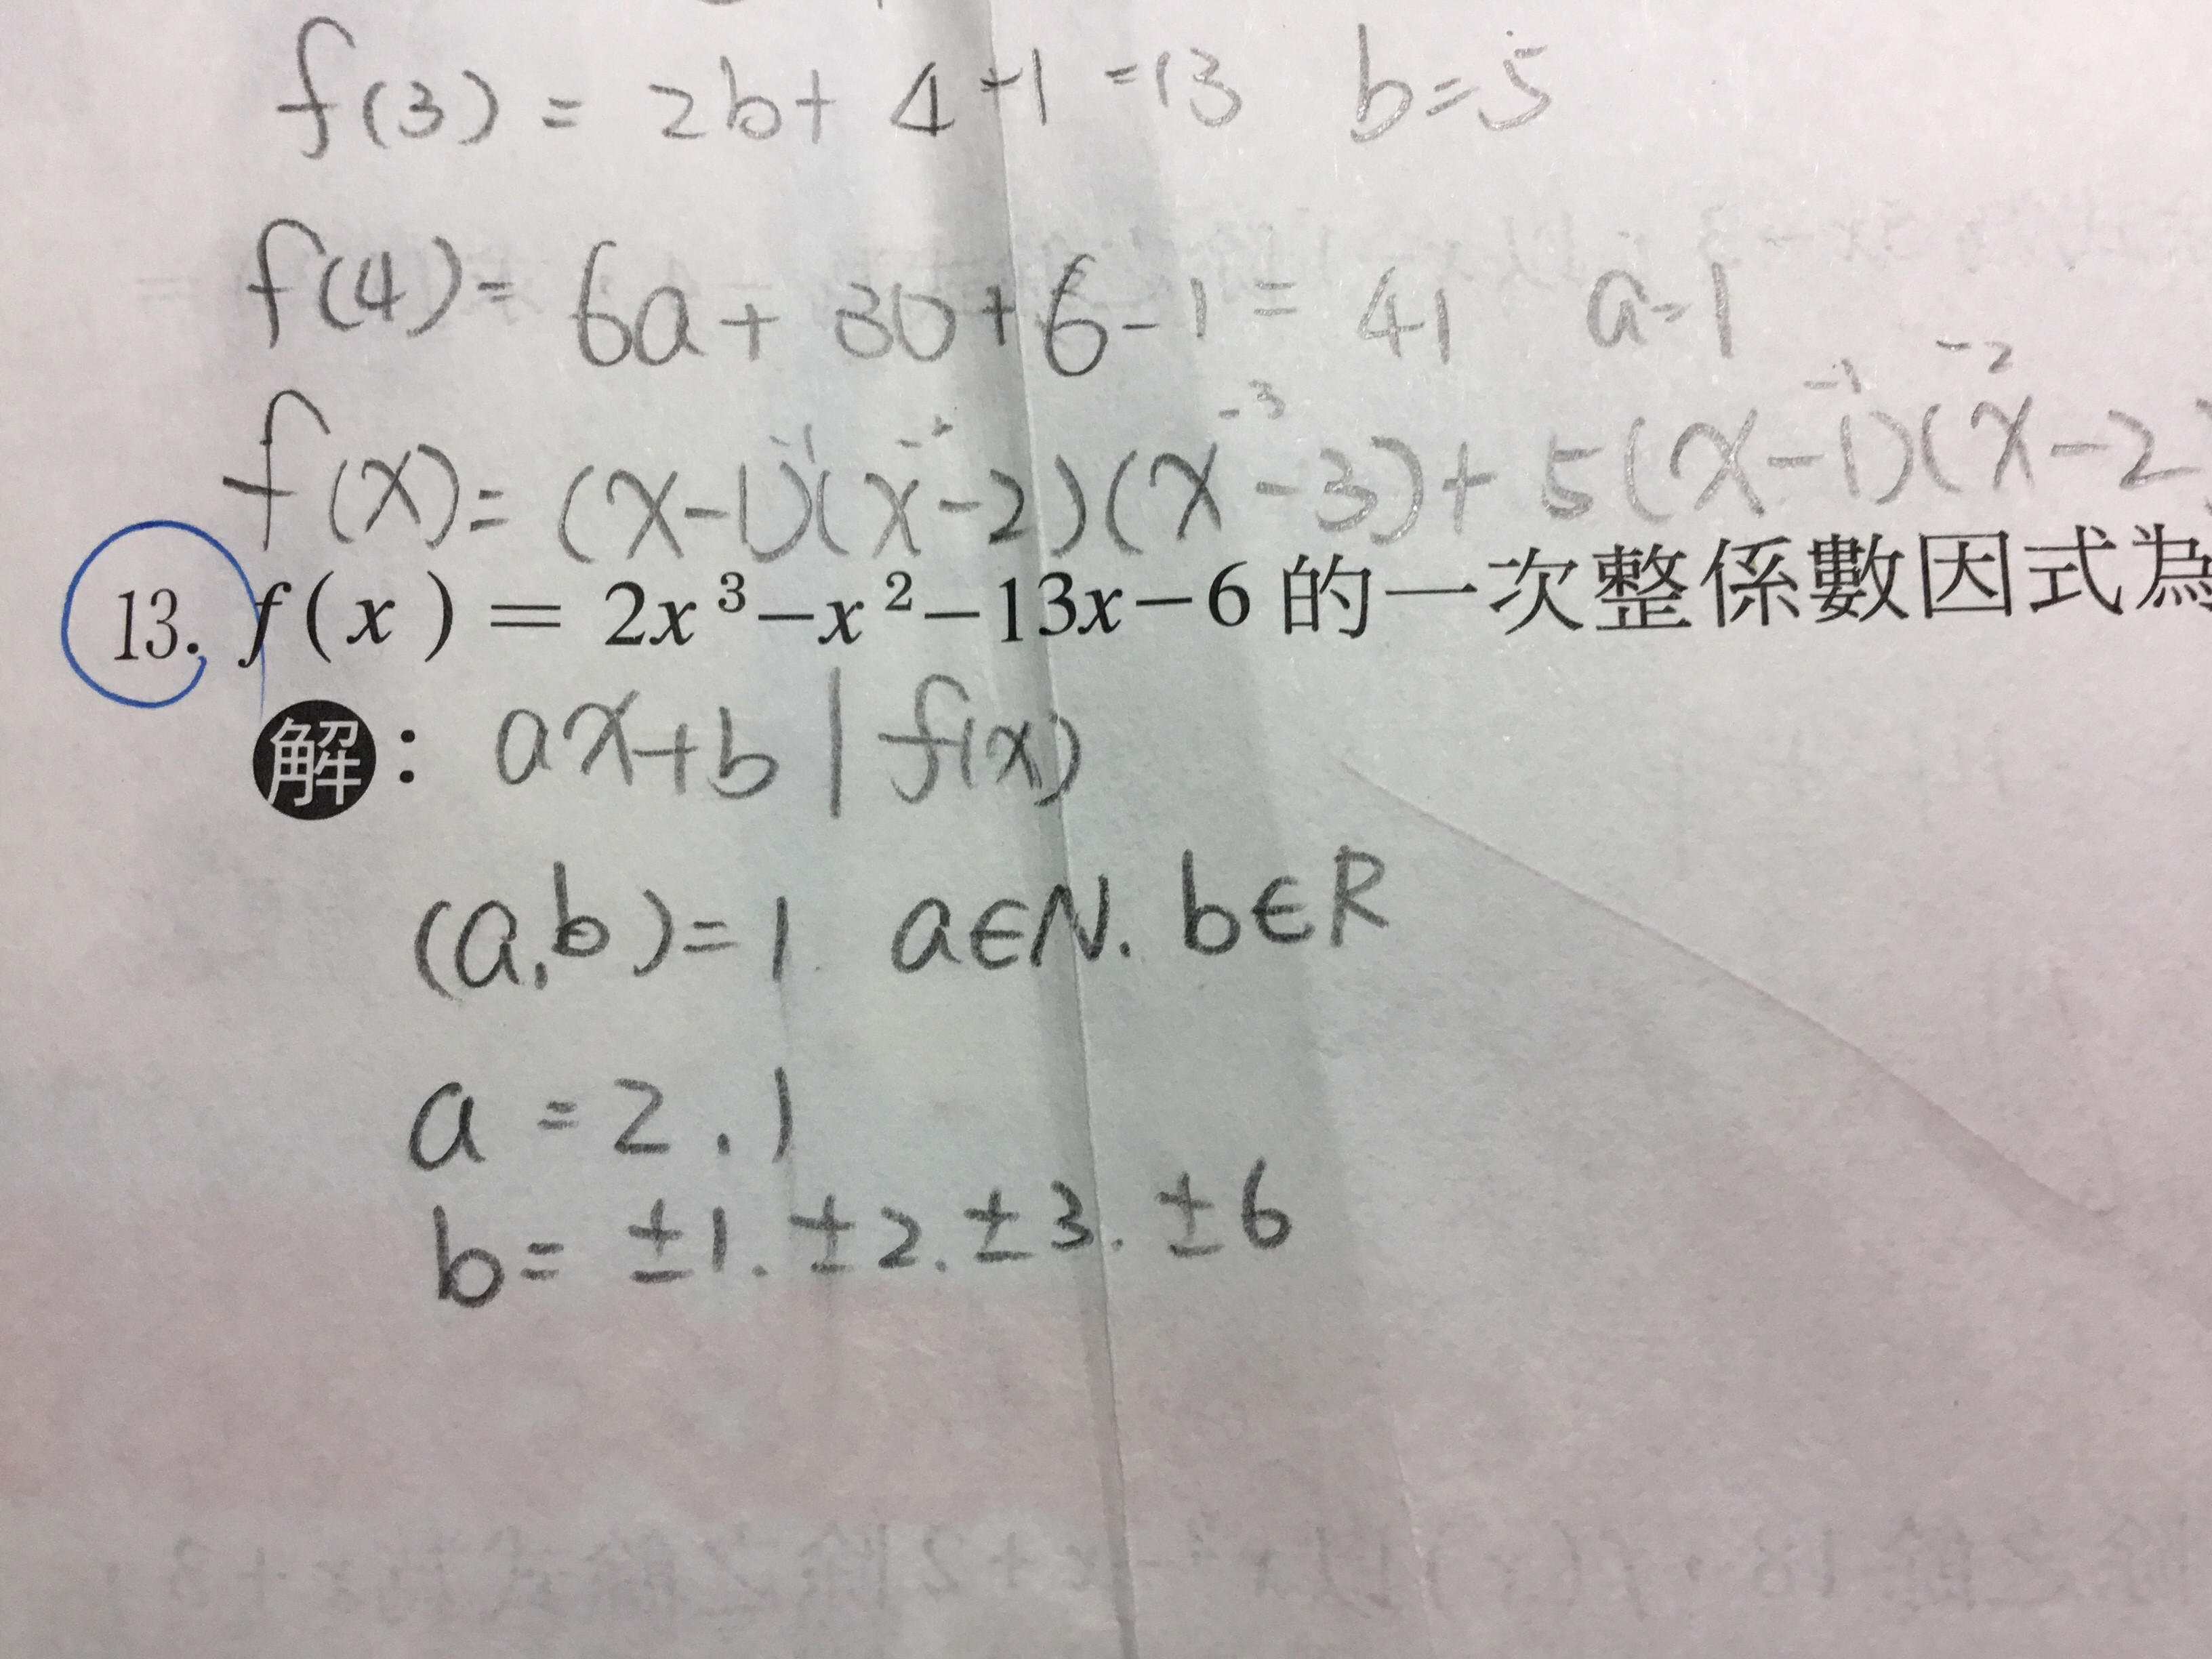 f(3) = 2b+ 4-1 =13 b=5
f(4)= 6a+ 30+6-1= 41 a=1
-1 -2 -3 -1 -2
f(x)= (x-1)(x-2)(x-3)+5(x-1)(x-2
13. f(x) = 2x³-x²-13x-6 的一次整係數因式為
解: ax+b | f(x)
(a,b)=1 a∈N. b∈R
a =2.1
b= ±1. ±2. ±3. ±6